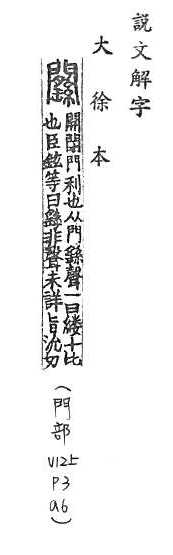 説文解字
大徐本
開閉門利也从門䌛聲一曰縷十比
也臣鉉等曰䌛非聲未詳旨沇切
(門部
V12上
P3
a6)